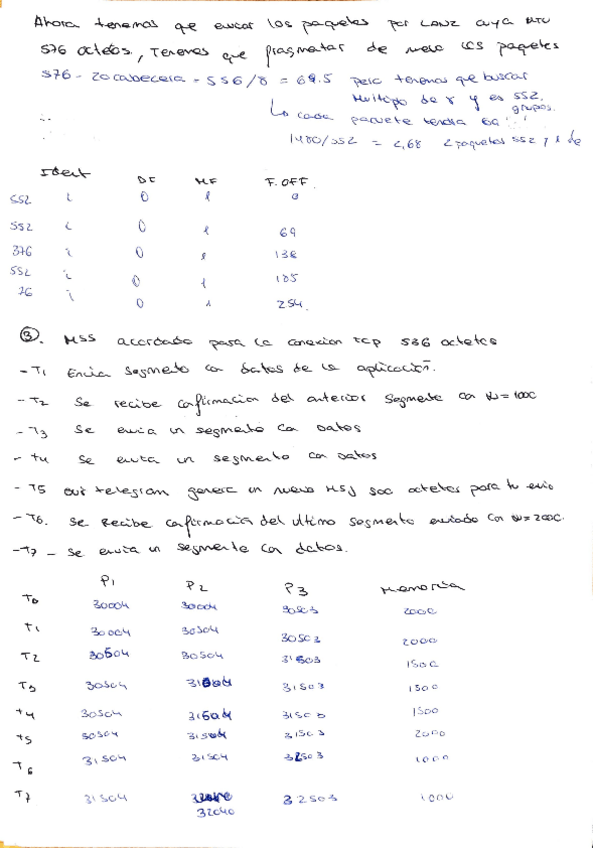 Ahora tenemos que enviar los paquetes por LAN2 cuya MTU
576 octetos, Tenemos que fragmentar de nuevo los paquetes
576 - 20 cabecera = 556/8 = 69.5 pero tenemos que buscar
multiplo de 8 y es 552.
↳ cada paquete tendra 69 grupos.
1480/552 = 2,68 2 paquetes 552 y 1 de
Ident DF MF F.OFF.
552 i 0 1 0
552 i 0 1 69
376 i 0 1 138
552 i 0 1 185
76 i 0 1 254
③. MSS acordado para la conexion tcp 536 octetos
- T1 Envia segmento con datos de la aplicación.
- T2 Se recibe confirmacion del anterior segmento con W=1000
- T3 Se envia un segmento con datos
- T4 Se envia un segmento con datos
- T5 our telegram genera un nuevo Msj 500 octetos para tu envio
- T6. Se Recibe confirmación del ultimo segmento enviado con W=2000.
- T7 - Se envia un segmento con datos.
P1 P2 P3 Memoria
T0 30004 30004 30503 2000
T1 30004 30504 30503 2000
T2 30504 30504 31503 1500
T3 30504 31504 31503 1500
T4 30504 31504 31503 1500
T5 30504 31504 31503 2000
T6 31504 31504 32503 1000
T7 31504 32503 1000
32040